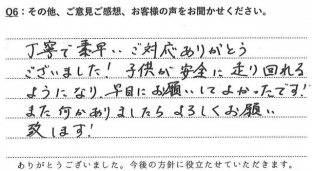 Q6：その他、ご意見ご感想、お客様の声をお聞かせください。
丁寧で素早い ご対応ありがとう
ございました！子供が安全に走り回れる
ようになり、早目にお願いしてよかったです！
また何かありましたら よろしくお願い
致します！
ありがとうございました。今後の方針に役立たせていただきます。